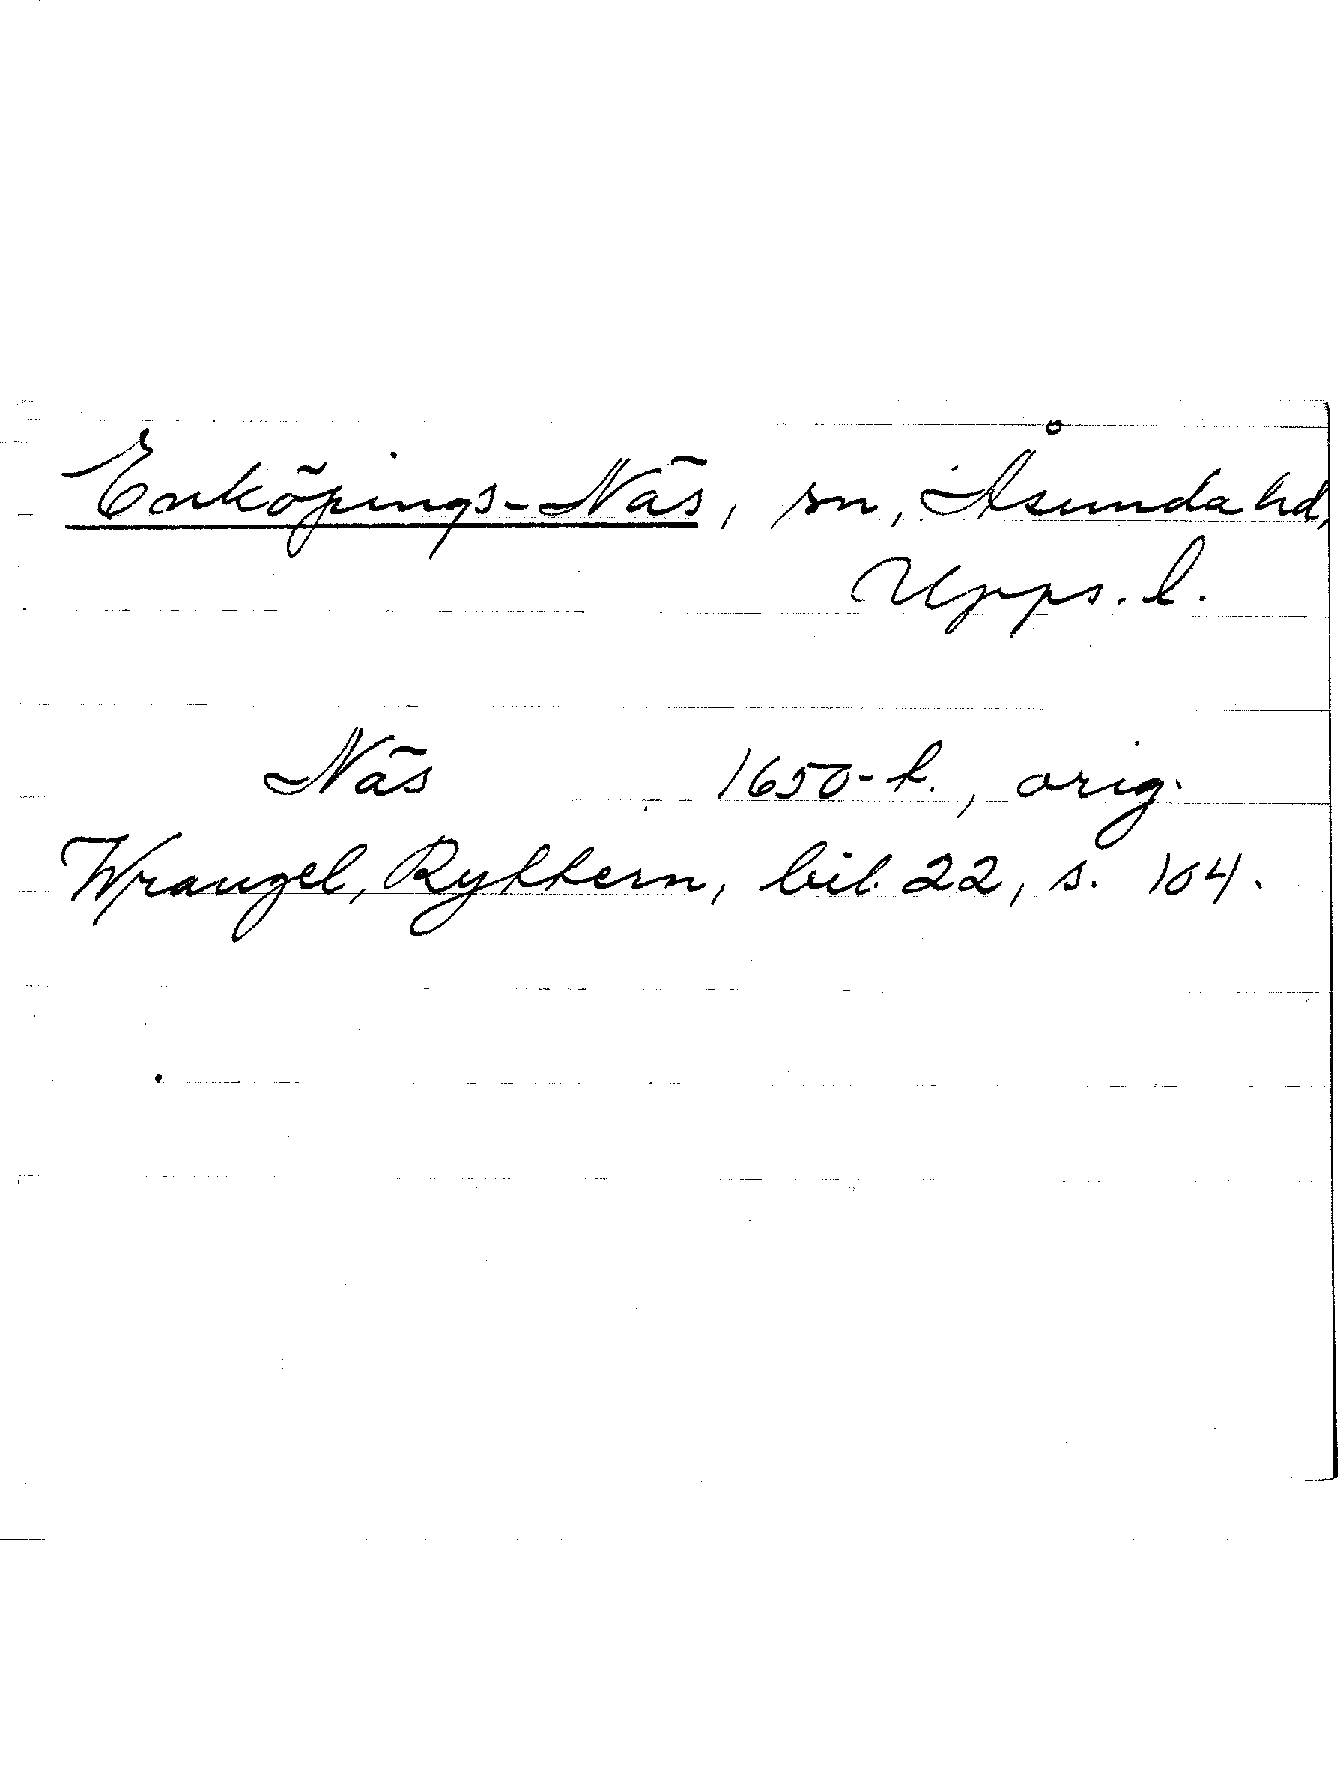 Enköpings-Näs, sn, Åsunda hd,
Upps. l.
Näs 1650-t., orig.
Wrangel, Ryttern, bil. 22, s. 104.